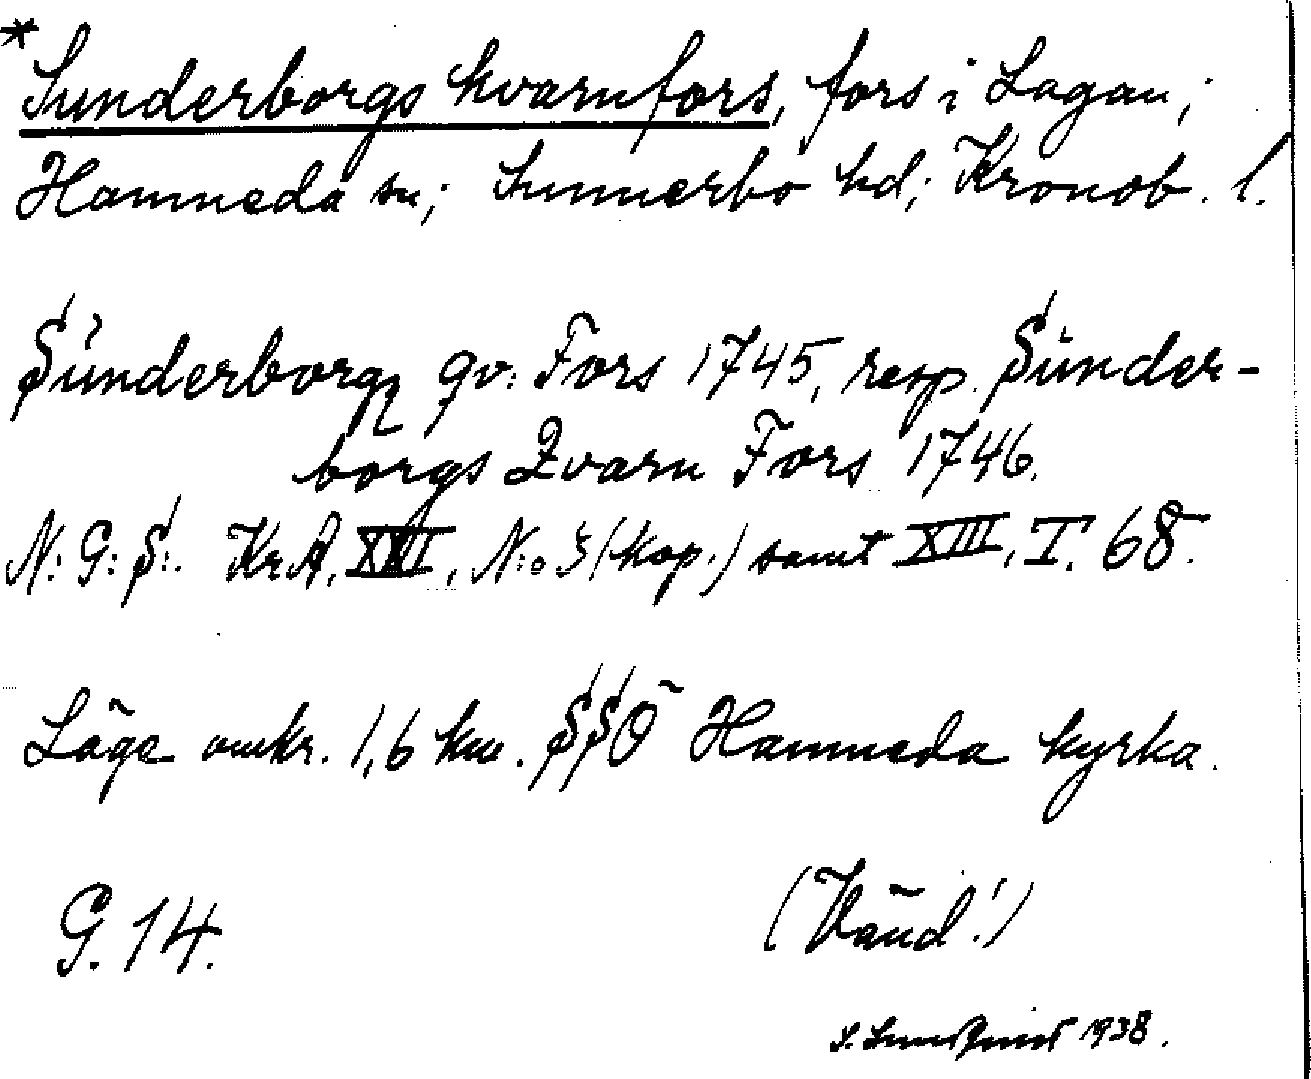 * Sunderborgs kvarnfors, fors i Lagan;
Hamneda sn; Sunnerbo hd; Kronob. l.
Sünderborgz qv: Fors 1745, resp. Sünder-
borgs Qvarn Fors 1746.
N: G: S:. KrA, XIII, N:o 3 (kop.) samt XIII, T. 68.
Läge omkr. 1,6 km. SSÖ Hamneda kyrka.
G. 14.
(Vänd!)
S. Lundquist 1938.